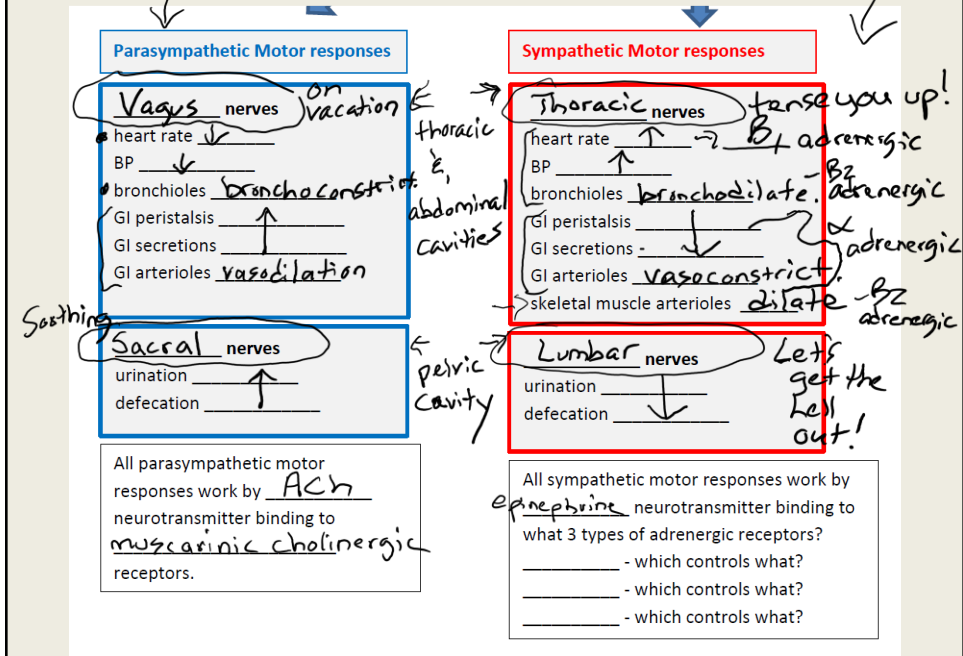 Parasympathetic Motor responses
Vagus nerves
on vacation
heart rate ↓
BP ↓
bronchioles bronchoconstrict.
GI peristalsis ↑
GI secretions
GI arterioles vasodilation
Soothing
Sacral nerves
urination ↑
defecation
All parasympathetic motor
responses work by ACh
neurotransmitter binding to
muscarinic cholinergic
receptors.
← thoracic →
&
abdominal
cavities
← pelvic →
cavity
Sympathetic Motor responses
Thoracic nerves
tense you up!
heart rate ↑ → B1 adrenergic
BP ↑
bronchioles bronchodilate. - B2 adrenergic
GI peristalsis
GI secretions - ↓
GI arterioles vasoconstrict.
α adrenergic
skeletal muscle arterioles dilate - B2 adrenergic
Lumbar nerves
Let's
get the
hell
out!
urination
defecation ↓
All sympathetic motor responses work by
epinephrine neurotransmitter binding to
what 3 types of adrenergic receptors?
__________ - which controls what?
__________ - which controls what?
__________ - which controls what?